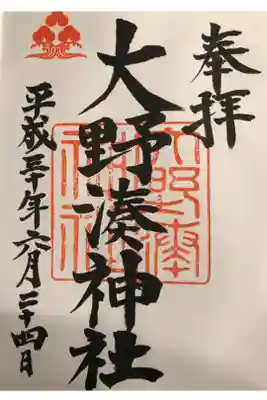 奉拝
大野湊神社
平成三十年六月二十四日